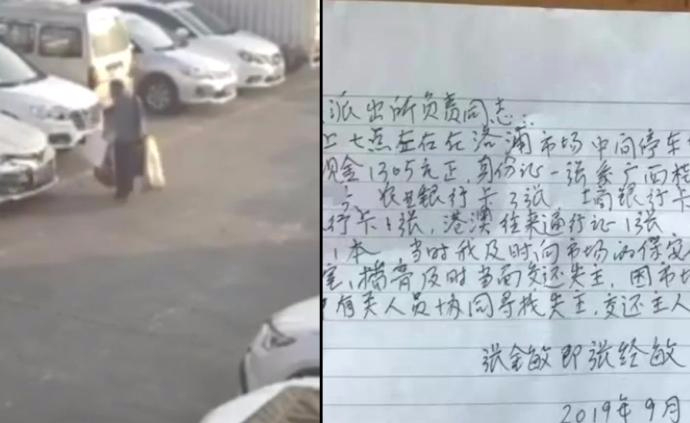 派出所负责同志:
上七点左右在洛浦市场中间停车
现金1305元正,身份证一张系广西桂
农业银行卡3张 工商银行卡
行卡1张,港澳往来通行证1张
1本 当时我及时向市场的保安
室,播音及时当面交还失主,因市场
有关人员协同寻找失主,交还主人
张金敏即张经敏
2019年9月